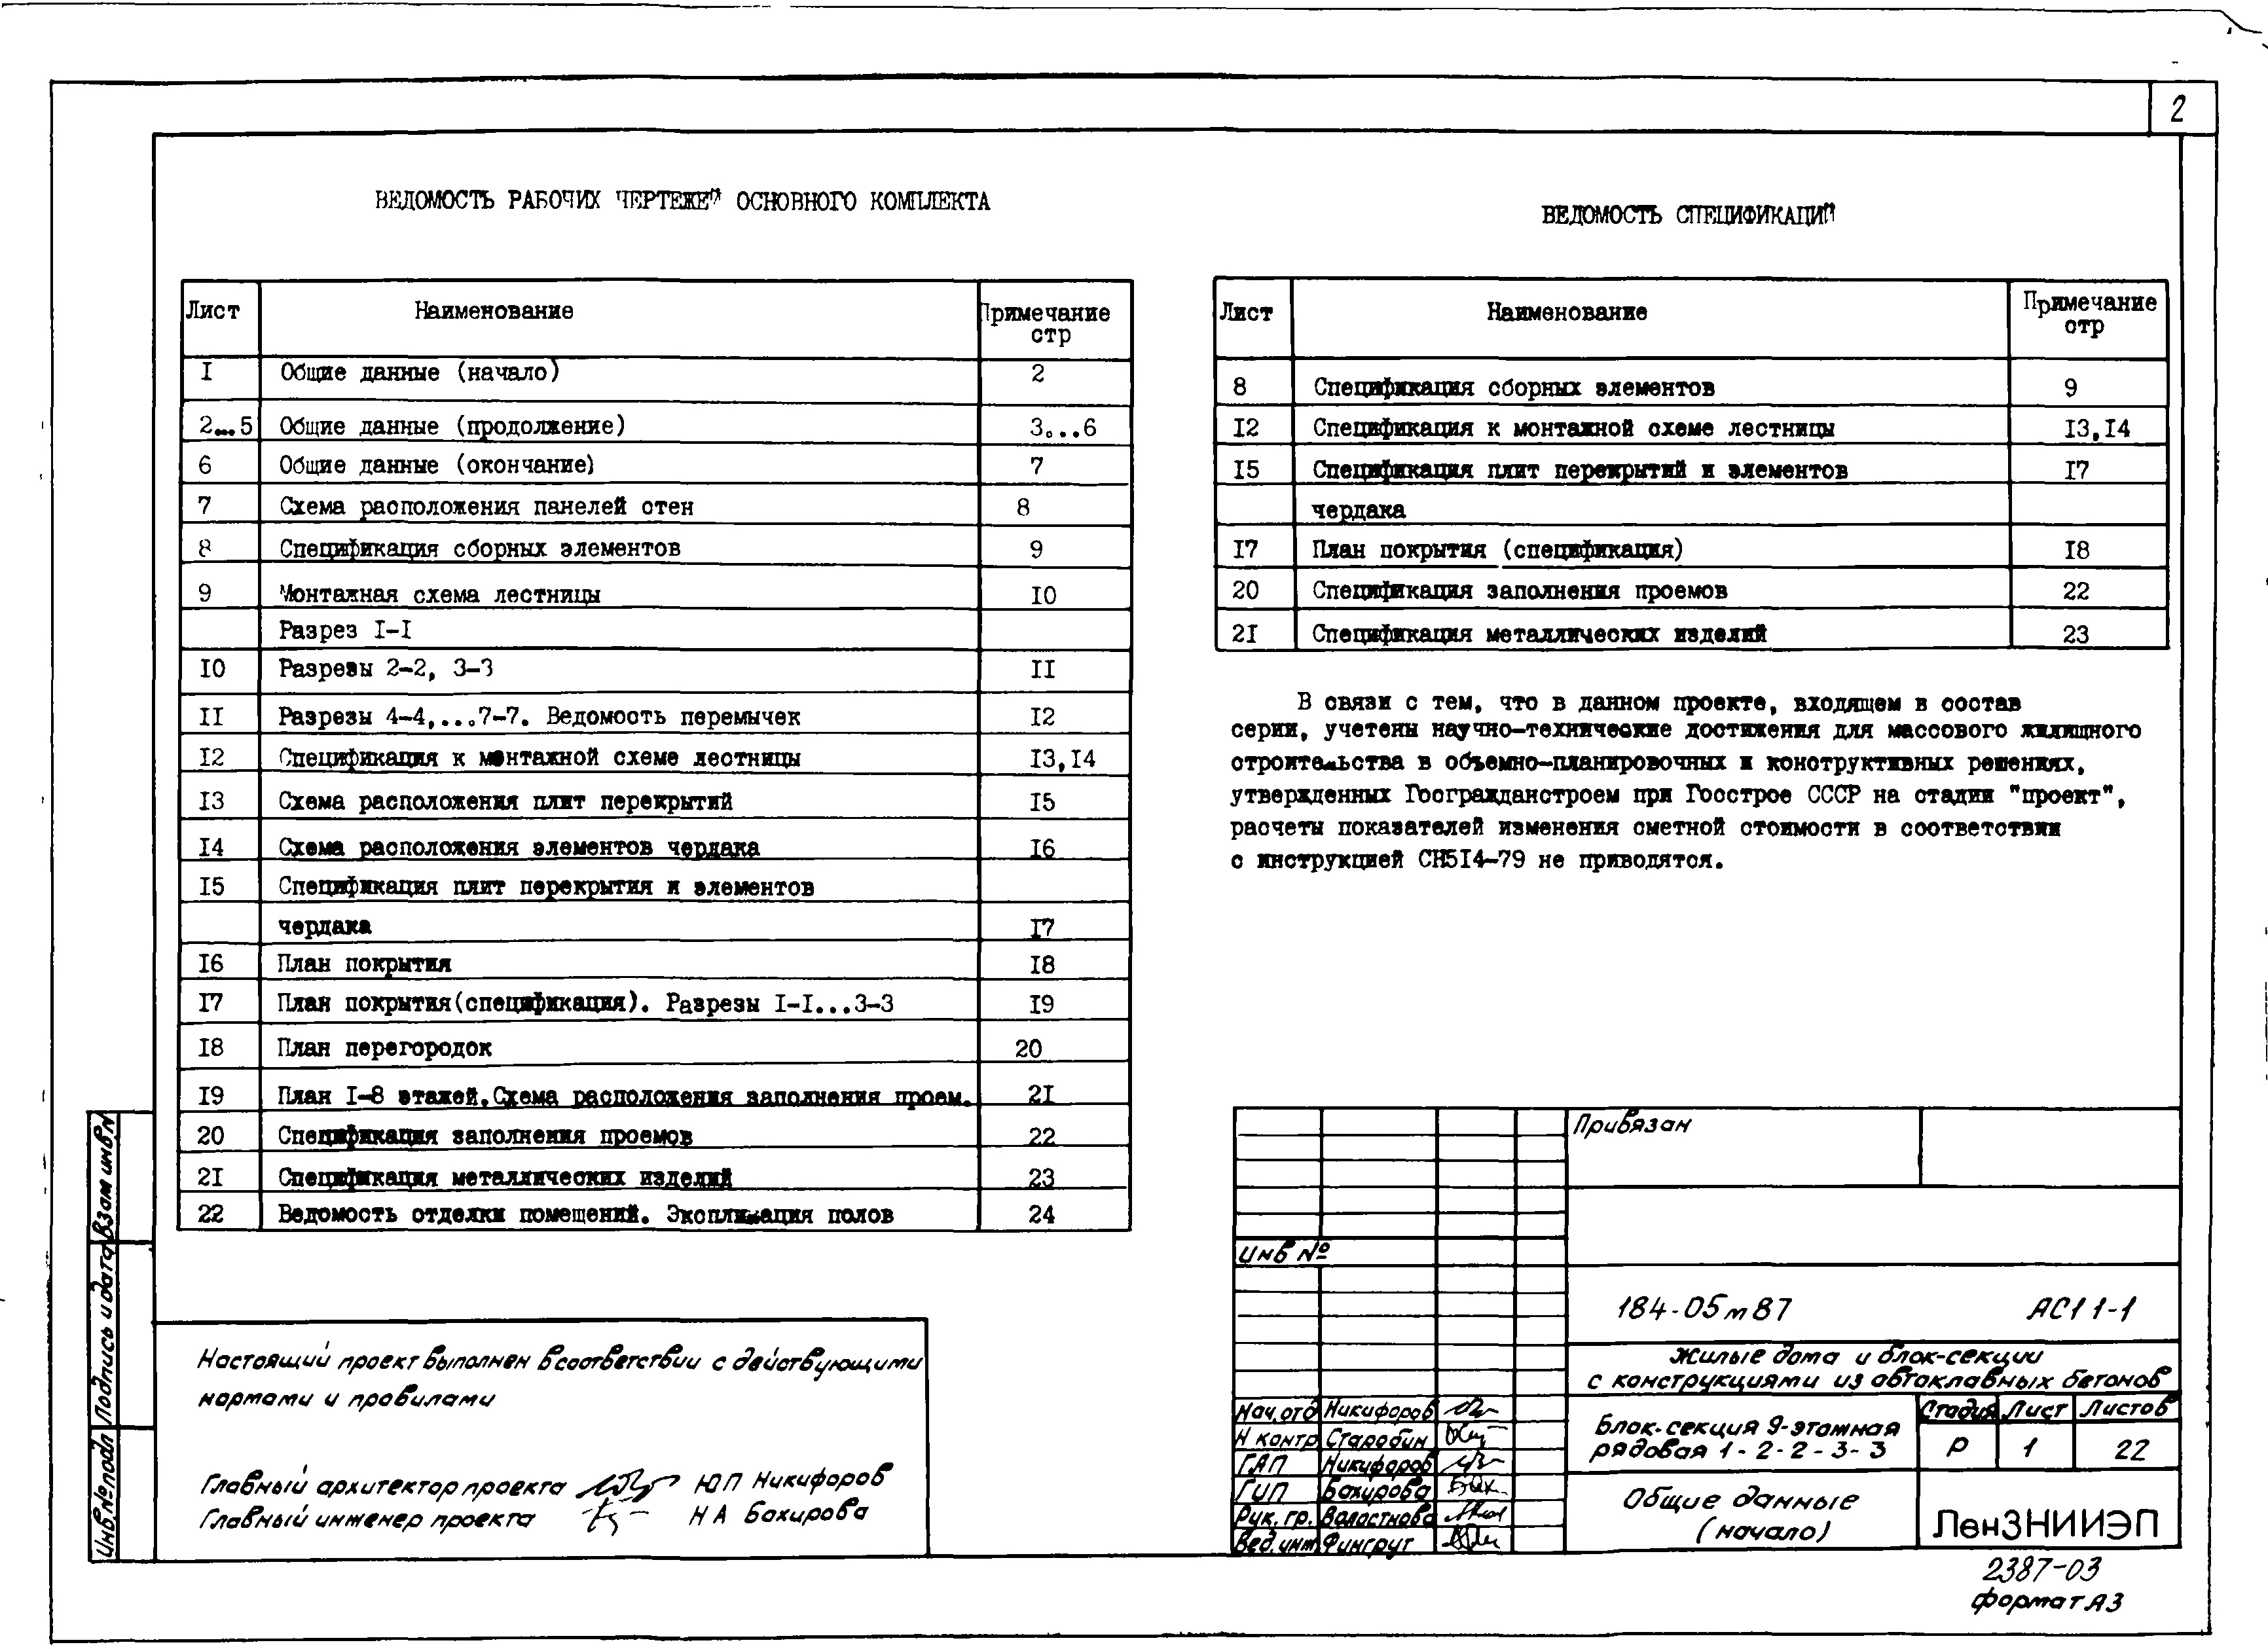 2
ВЕДОМОСТЬ РАБОЧИХ ЧЕРТЕЖЕЙ ОСНОВНОГО КОМПЛЕКТА
Лист Наименование Примечание
стр
I Общие данные (начало) 2
2...5 Общие данные (продолжение) 3...6
6 Общие данные (окончание) 7
7 Схема расположения панелей стен 8
8 Спецификация сборных элементов 9
9 Монтажная схема лестницы I0
Разрез I-I
I0 Разрезы 2-2, 3-3 II
II Разрезы 4-4,...7-7. Ведомость перемычек I2
I2 Спецификация к монтажной схеме лестницы I3,I4
I3 Схема расположения плит перекрытий I5
I4 Схема расположения элементов чердака I6
I5 Спецификация плит перекрытия и элементов
чердака I7
I6 План покрытия I8
I7 План покрытия(спецификация). Разрезы I-I...3-3 I9
I8 План перегородок 20
I9 План I-8 этажей.Схема расположения заполнения проем. 2I
20 Спецификация заполнения проемов 22
2I Спецификация металлических изделий 23
22 Ведомость отделки помещений. Экспликация полов 24
ВЕДОМОСТЬ СПЕЦИФИКАЦИЙ
Лист Наименование Примечание
стр
8 Спецификация сборных элементов 9
I2 Спецификация к монтажной схеме лестницы I3,I4
I5 Спецификация плит перекрытий и элементов I7
чердака
I7 План покрытия (спецификация) I8
20 Спецификация заполнения проемов 22
2I Спецификация металлических изделий 23
В связи с тем, что в данном проекте, входящем в состав
серии, учетены научно-технические достижения для массового жилищного
строительства в объемно-планировочных и конструктивных решениях,
утвержденных Госгражданстроем при Госстрое СССР на стадии "проект",
расчеты показателей изменения сметной стоимости в соответствии
с инструкцией СН5I4-79 не приводятся.
Настоящий проект выполнен в соответствии с действующими
нормами и правилами
Главный архитектор проекта ЮП Никифоров
Главный инженер проекта НА Бахирова
Взам инв N
Подпись и дата
Инв. № подл
Привязан
Инв №
184-05м87 АС1 1-1
Жилые дома и блок-секции
с конструкциями из автоклавных бетонов
Нач. отд Никифоров
Н контр Старобин
ГАП Никифоров
ГИП Бахирова
Рук. гр. Валастнова
Вед. инж Фингрут
Блок-секция 9-этажная
рядовая 1-2-2-3-3
Стадия Лист Листов
Р 1 22
Общие данные
(начало)
ЛенЗНИИЭП
2387-03
формат А3